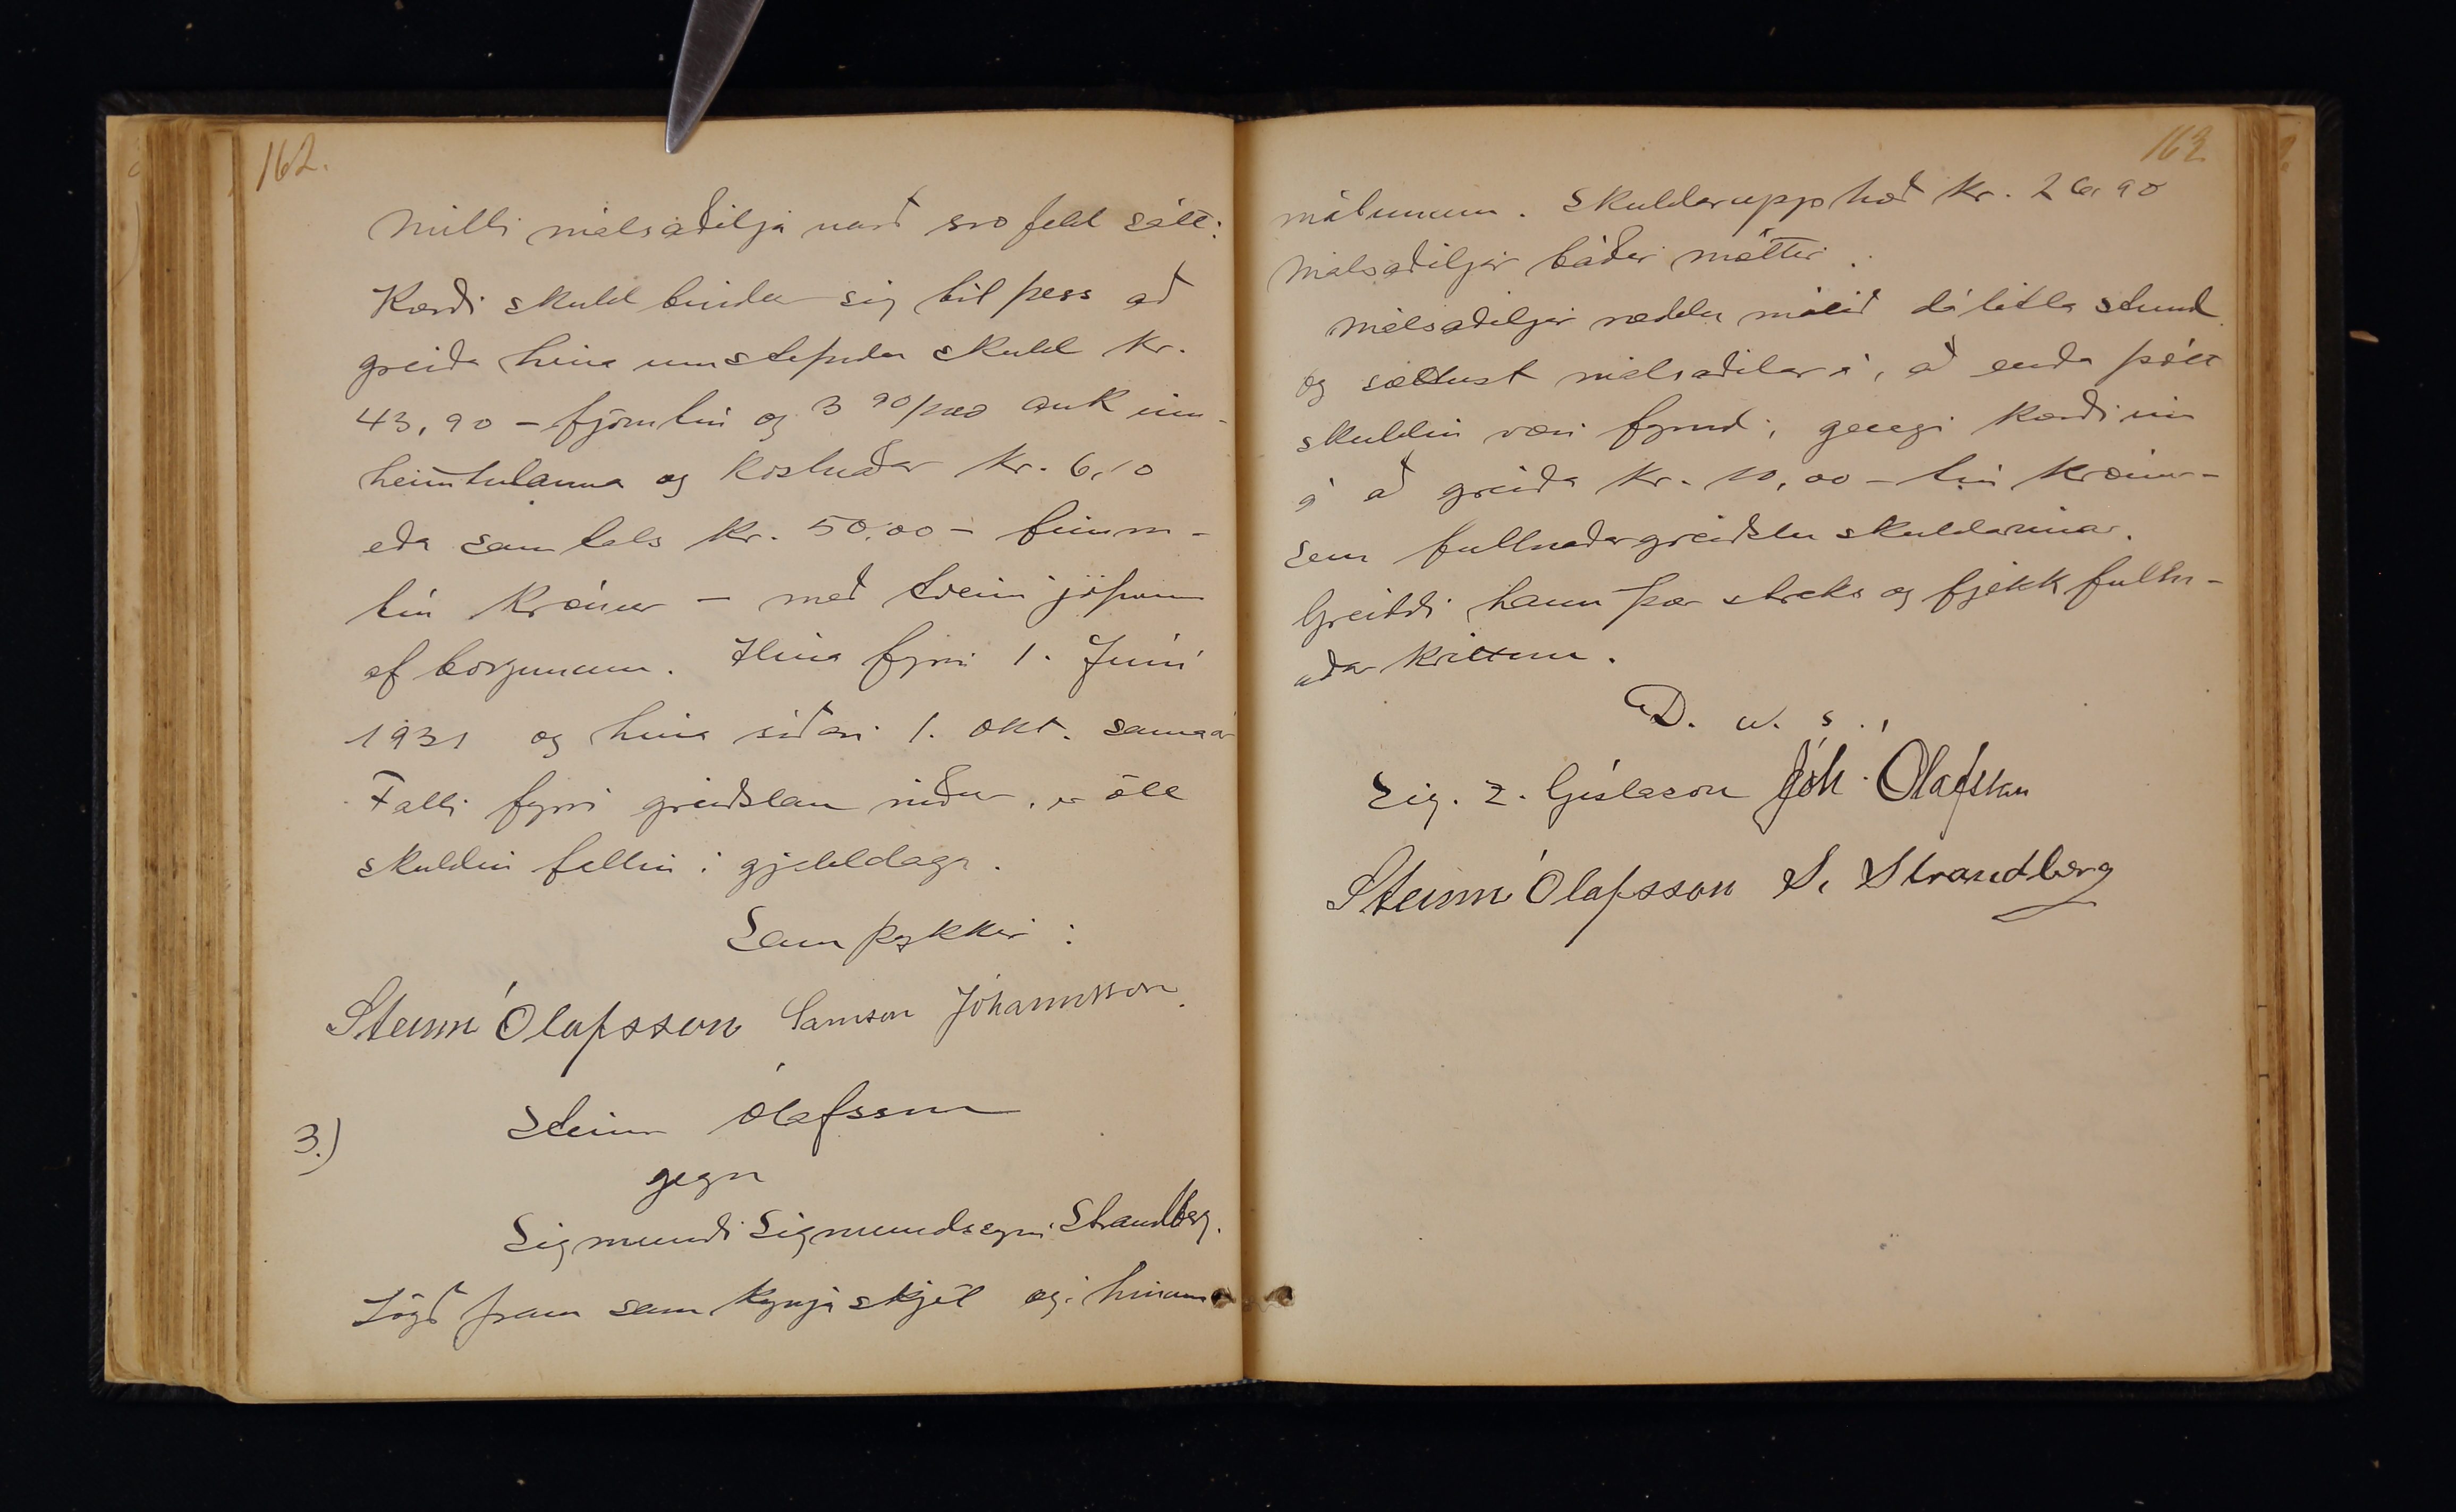 162.
Milli málsaðilja varð svofeld sátt:
Kærði skuldbindur sig til þess að
greiða hina umstefndu skuld kr.
43,90 - fjörutíu og 3 90/100 auk inn-
heimtulauna og kostnaðar kr. 6,10
eða samtals kr. 50,00 - fimm-
tíu krónur - með tveim jöfnum
afborgunum. Hina fyrri 1. Júní
1931 og hina síðari 1. okt. sama ár
Falli fyrri greiðslan niður, er öll
skuldin fallin í gjalddaga.
Samþykkir:
Steinn Ólafsson Samson Jóhannsson.
3.) Steinn Ólafsson
gegn
Sigmundi Sigmundssyni Strandberg.
Lögð fram samkynja skjöl og í hinum
163
málunum. Skuldarupphæð kr. 26,90
Málsaðiljar báðir mættir.
Málsaðiljar ræddu málið dálitla stund
og sættust málsaðilar á, að enda þótt
skuldin væri fyrnd, gengi kærði inn
á að greiða kr. 10,00 - tíu krónur -
sem fullnaðargreiðslu skuldarinnar.
Greiddi hann þær strax og fjekk fulln-
aðar kvittun.
D. u. s.
Sig. Z. Gíslason Jóh. Ólafsson
Steinn Ólafsson S. Strandberg